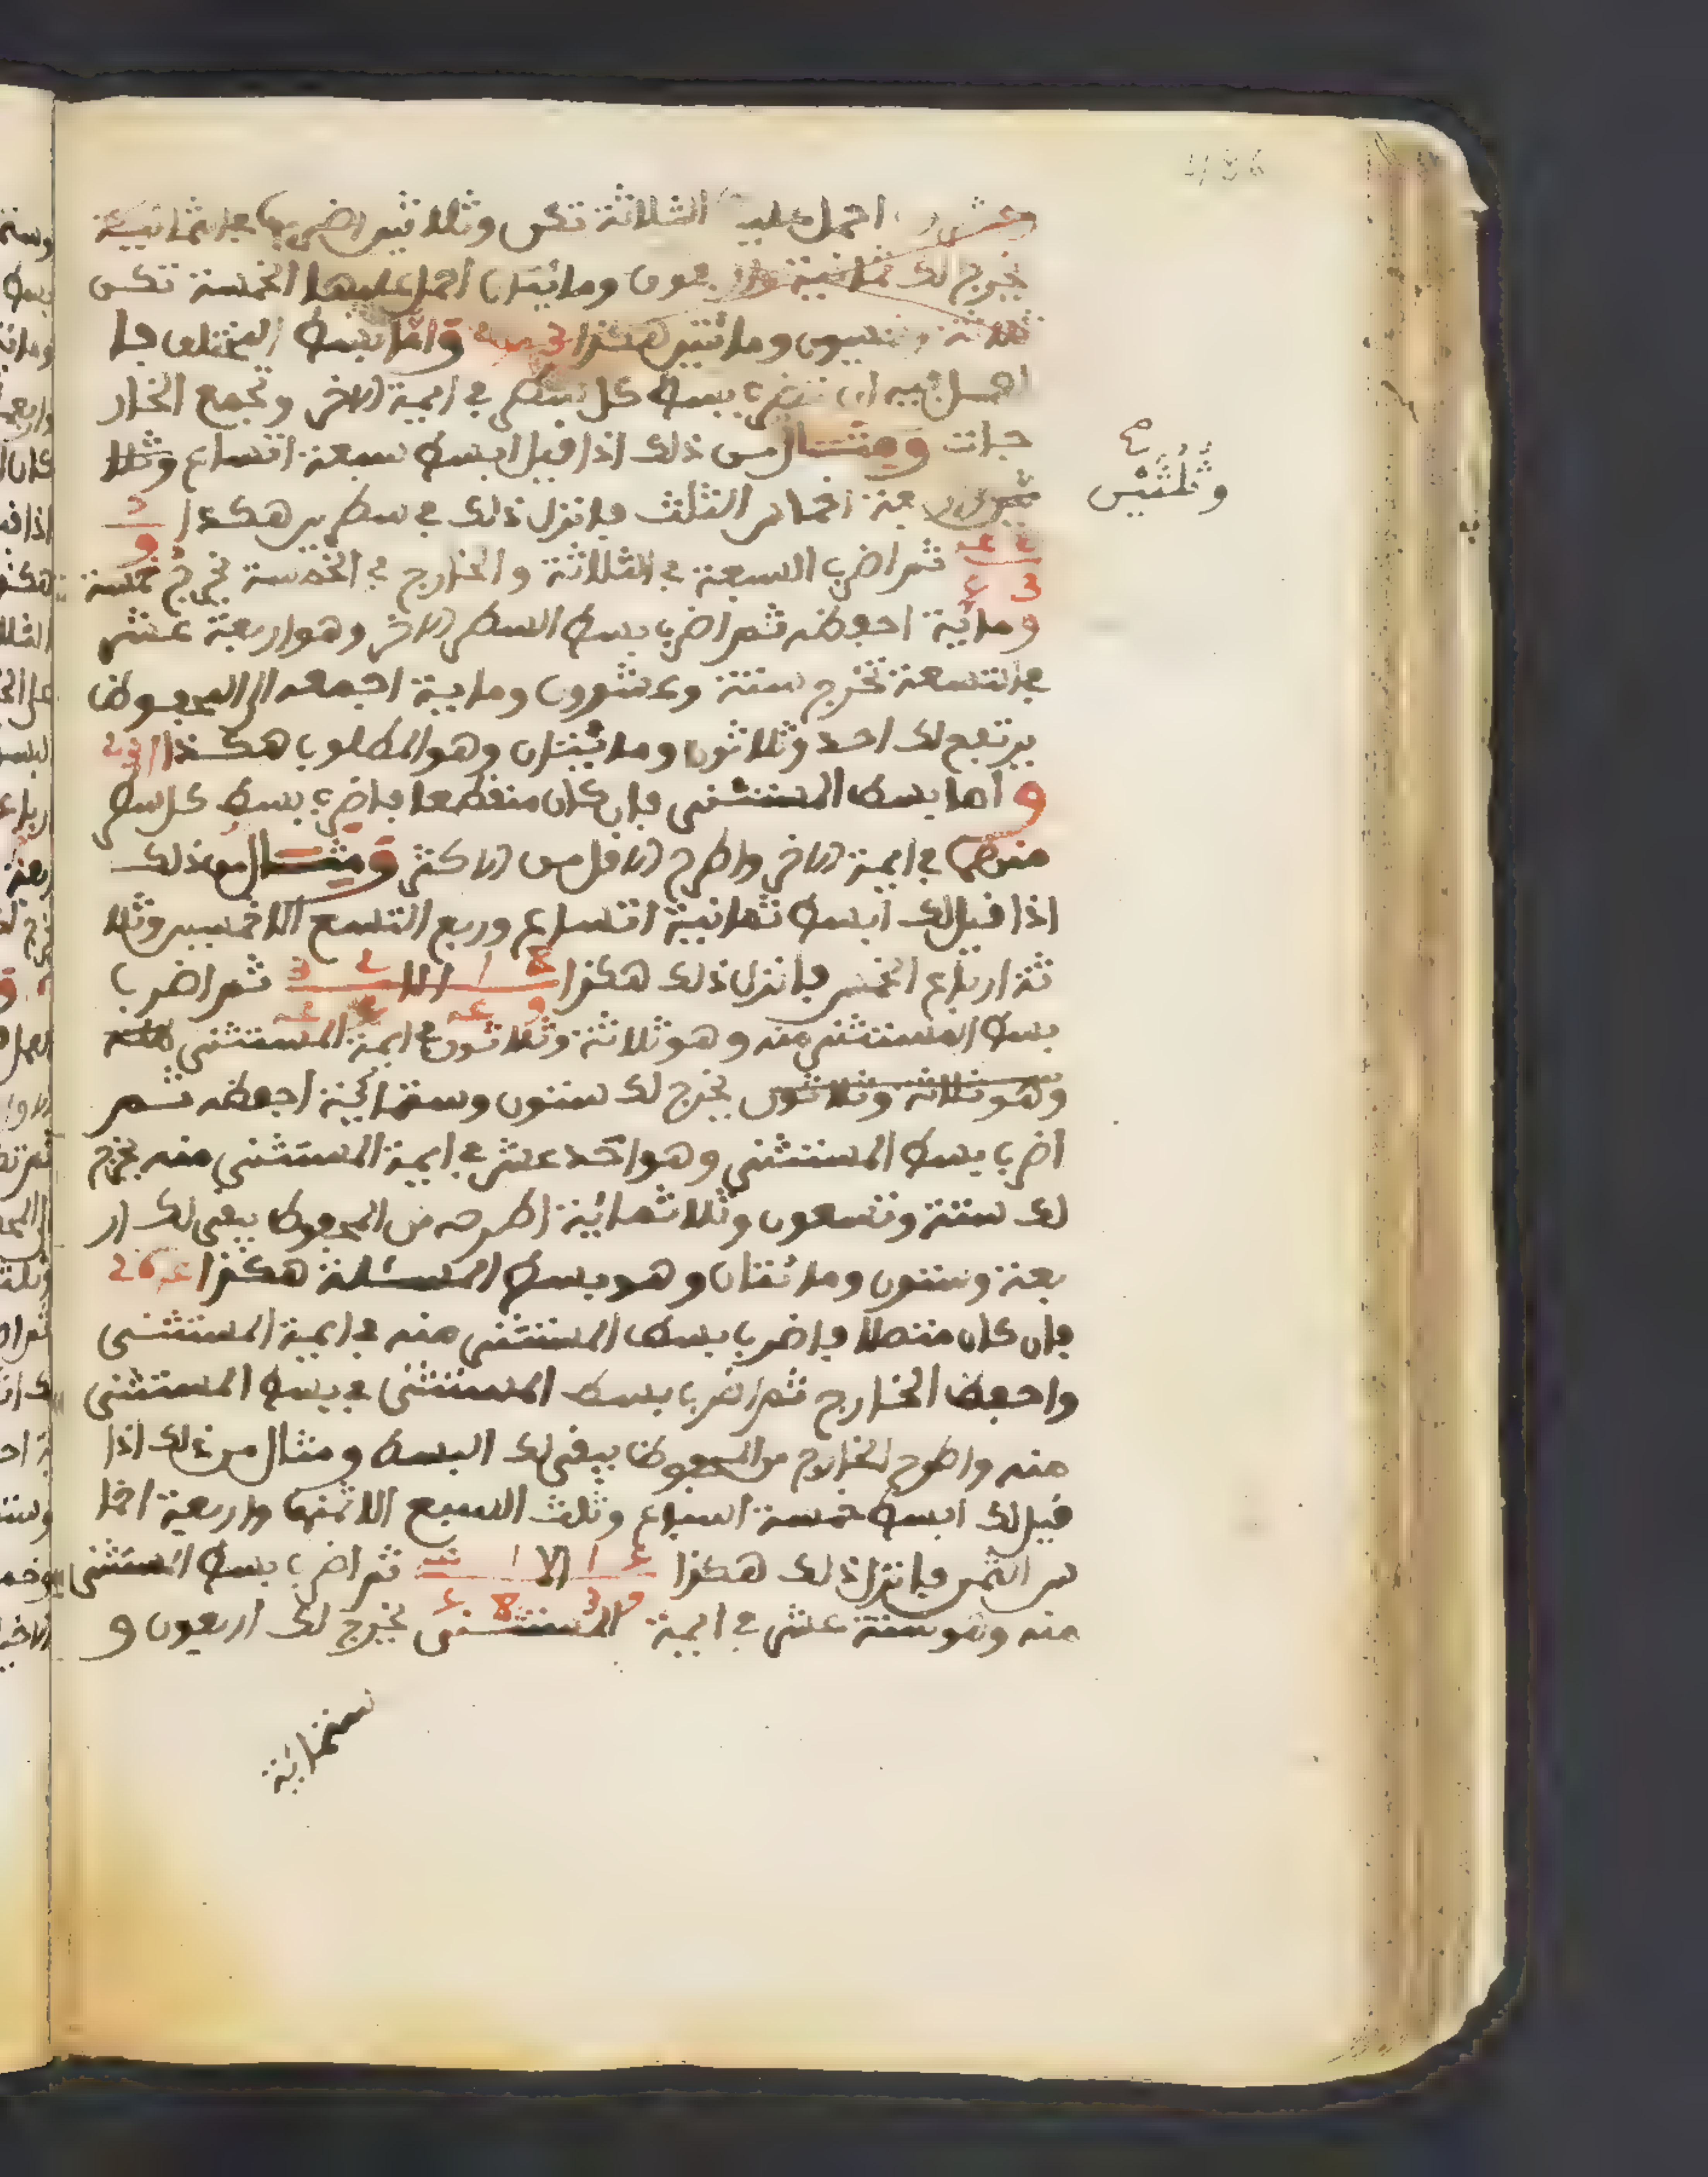 احمل عليه الثلاثة تكن وثلاثين اضربها في ثمانية
يخرج لك ثمانية واربعون ومائتان احمل عليها الخمسة تكن
ثلاثة وخمسون ومائتين هكذا واما بسط المختلف فا
لعمل فيه ان تضرب بسط كل سطر في ايمة الاخر وتجمع الخار
جات ومثال من ذلك اذا قيل ابسط سبعة اتساع وثلا
وثلثين صح
اخماس الثلث فانزل ذلك في سطرين هكذا
ثم اضرب السبعة في الثلاثة والخارج في الخمسة يخرج خمسة
ومائة احفظه ثم اضرب بسط السطر الاخر وهو اربعة عشر
في تسعة تخرج ستة وعشرون ومائة اجمعه الى المحفوظ
يرتفع لك احد وثلاثون ومائتان وهو المطلوب هكذا 231
و اما بسط المستثنى فان كان منقطعا فاضرب بسط كل سطر
منهما في ايمة الاخر واطرح الاقل من الاكثر ومثال من ذلك
اذا قيل لك ابسط ثمانية اتساع وربع التسع الا خمسين وثلا
ثة ارباع الخمس فانزل ذلك هكذا 8 1 الا 2 3 ثم اضرب
بسط المستثنى منه وهو ثلاثة وثلاثون في ايمة المستثنى منه
وهو ثلاثة وثلاثون يخرج لك ستون وستمائة احفظه ثم
اضرب بسط المستثنى وهو احد عشر في ايمة المستثنى منه يخرج
لك ستة وتسعون وثلاثمائة اطرحه من المحفوظ يبقى لك ار
بعة وستون ومائتان وهو بسط المسئلة هكذا 264
فان كان متصلا فاضرب بسط المستثنى منه في ايمة المستثنى
واحفظ الخارج ثم اضرب بسط المستثنى في بسط المستثنى
منه واطرح الخارج من المحفوظ يبقى لك البسط ومثال من ذلك اذا
قيل لك ابسط خمسة اسباع وثلث السبع الا ثمنها واربعة اخما
س الثمن فانزل ذلك هكذا ثم اضرب بسط المستثنى
منه وهو ستة عشر في ايمة المستثنى يخرج لك اربعون و
ستمائة